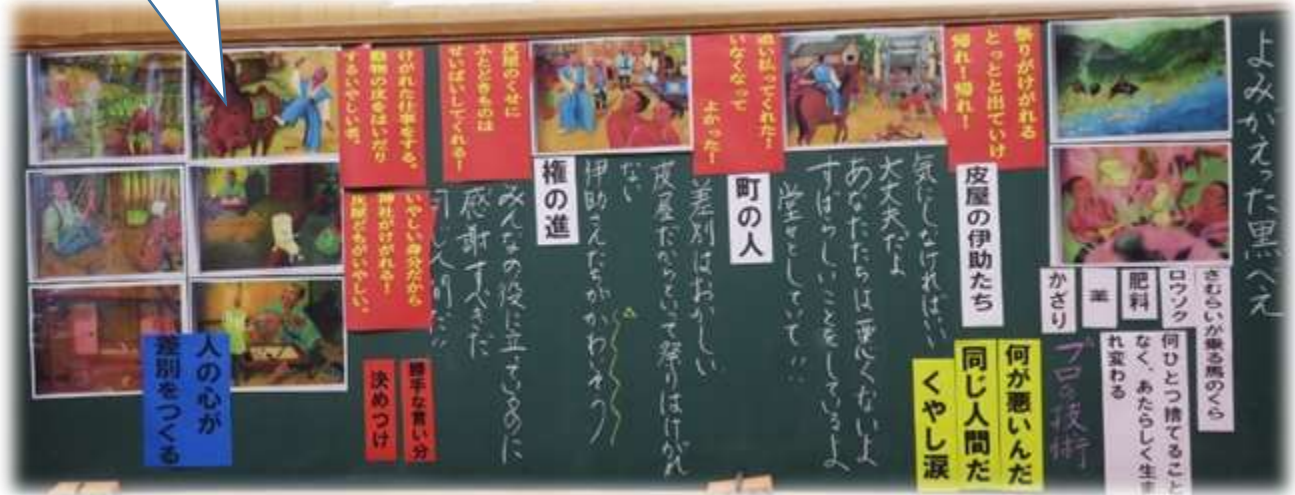 よみがえった黒べえ
さむらいが乗る馬のくら
ロウソク
肥料
薬
かざり
何ひとつ捨てること
なく、あたらしく生ま
れ変わる
プロの技術
祭りがけがれる
とっとと出ていけ
帰れ！帰れ！
皮屋の伊助たち
何が悪いんだ
同じ人間だ
くやし涙
気にしなければいい
大丈夫だよ
あなたたちは悪くないよ
すばらしいことをしているよ
堂々としていて!!
追い払ってくれた！
いなくなって
よかった！
町の人
差別はおかしい
皮屋だからといって祭りはけがれ
ない
伊助さんたちがかわいそう
皮屋のくせに
ふとどきものは
せいばいしてくれる！
権の進
みんなの役に立っているのに
感謝すべきだ
同じ人間だ!!
けがれた仕事をする。
動物の皮をはいだり
するいやしい者。
いやしい身分だから
神社がけがれる！
皮屋どもがいやしい。
勝手な言い分
決めつけ
人の心が
差別をつくる